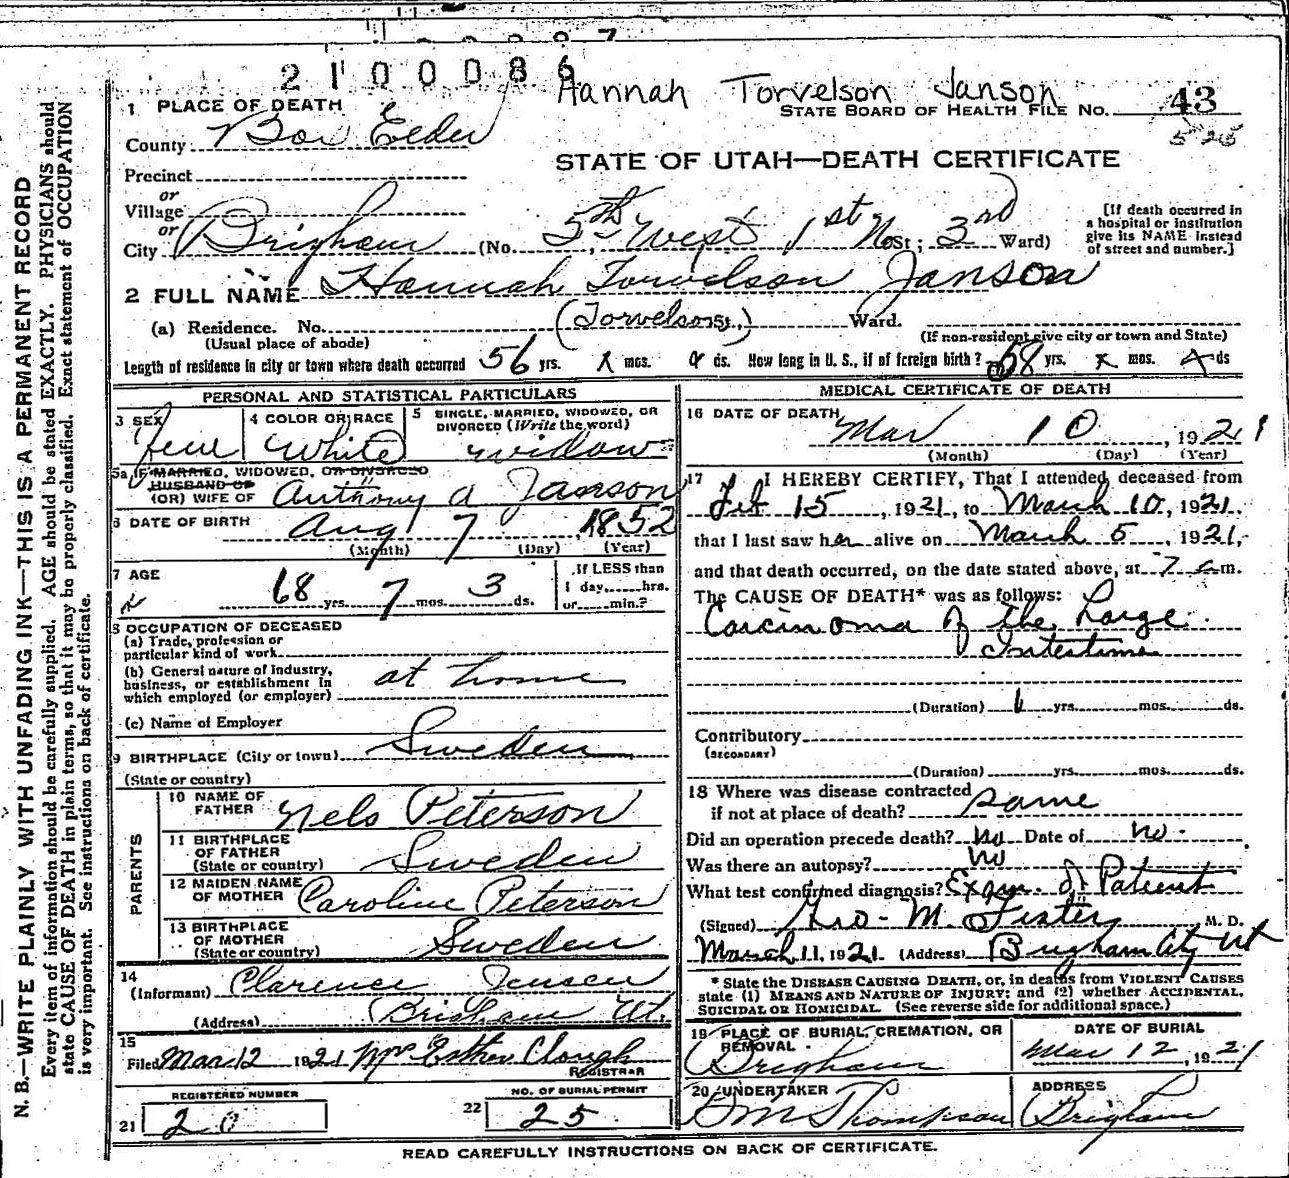 2100086
Hannah Torvelson Janson
STATE BOARD OF HEALTH FILE NO. 43
1 PLACE OF DEATH
County Box Elder
STATE OF UTAH—DEATH CERTIFICATE
Precinct
or
Village
or
City Brigham (No. 5th West 1st No St; 3rd Ward)
[If death occurred in
a hospital or institution
give its NAME instead
of street and number.]
2 FULL NAME Hannah Torvelson Janson
(a) Residence. No. (Torvelson) St., Ward.
(Usual place of abode) (If non-resident give city or town and State)
Length of residence in city or town where death occurred 56 yrs. x mos. ds. How long in U. S., if of foreign birth? 58 yrs. x mos. ds
PERSONAL AND STATISTICAL PARTICULARS
3 SEX Fem
4 COLOR OR RACE White
5 SINGLE, MARRIED, WIDOWED, OR
DIVORCED (Write the word)
widow
5a IF MARRIED, WIDOWED, OR DIVORCED
HUSBAND OF
(OR) WIFE OF Anthony A Janson
6 DATE OF BIRTH Aug 7, 1852
(Month) (Day) (Year)
7 AGE 68 yrs. 7 mos. 3 ds.
If LESS than
1 day, hrs.
or min.?
8 OCCUPATION OF DECEASED
(a) Trade, profession or
particular kind of work
(b) General nature of industry,
business, or establishment in
which employed (or employer)
at home
(c) Name of Employer
9 BIRTHPLACE (City or town) Sweden
(State or country)
PARENTS
10 NAME OF
FATHER Nels Peterson
11 BIRTHPLACE
OF FATHER
(State or country) Sweden
12 MAIDEN NAME
OF MOTHER Caroline Peterson
13 BIRTHPLACE
OF MOTHER
(State or country) Sweden
14
(Informant) Clarence Jensen
(Address) Brigham Ut.
15
Filed Mar 12 1921 Mrs Esther Clough
REGISTRAR
REGISTERED NUMBER
21 20
NO. OF BURIAL PERMIT
22 25
MEDICAL CERTIFICATE OF DEATH
16 DATE OF DEATH
Mar 10, 1921
(Month) (Day) (Year)
17 I HEREBY CERTIFY, That I attended deceased from
Feb 15, 1921, to March 10, 1921.
that I last saw her alive on March 5, 1921,
and that death occurred, on the date stated above, at 7 a m.
The CAUSE OF DEATH* was as follows:
Carcinoma of the Large
Intestine
(Duration) 1 yrs. mos. ds.
Contributory
(SECONDARY)
(Duration) yrs. mos. ds.
18 Where was disease contracted
if not at place of death? same
Did an operation precede death? No Date of no.
Was there an autopsy? No
What test confirmed diagnosis? Exam. of Patient
(Signed) Geo. M. Fister, M. D.
March 11, 1921 (Address) Brigham City Ut
* State the DISEASE CAUSING DEATH, or, in deaths from VIOLENT CAUSES
state (1) MEANS AND NATURE OF INJURY; and (2) whether ACCIDENTAL,
SUICIDAL OR HOMICIDAL. (See reverse side for additional space.)
19 PLACE OF BURIAL, CREMATION, OR
REMOVAL
Brigham
DATE OF BURIAL
Mar 12, 1921
20 UNDERTAKER
Thompson
ADDRESS
Brigham
READ CAREFULLY INSTRUCTIONS ON BACK OF CERTIFICATE.
N. B.—WRITE PLAINLY WITH UNFADING INK—THIS IS A PERMANENT RECORD
Every item of information should be carefully supplied. AGE should be stated EXACTLY. PHYSICIANS should
state CAUSE OF DEATH in plain terms, so that it may be properly classified. Exact statement of OCCUPATION
is very important. See instructions on back of certificate.